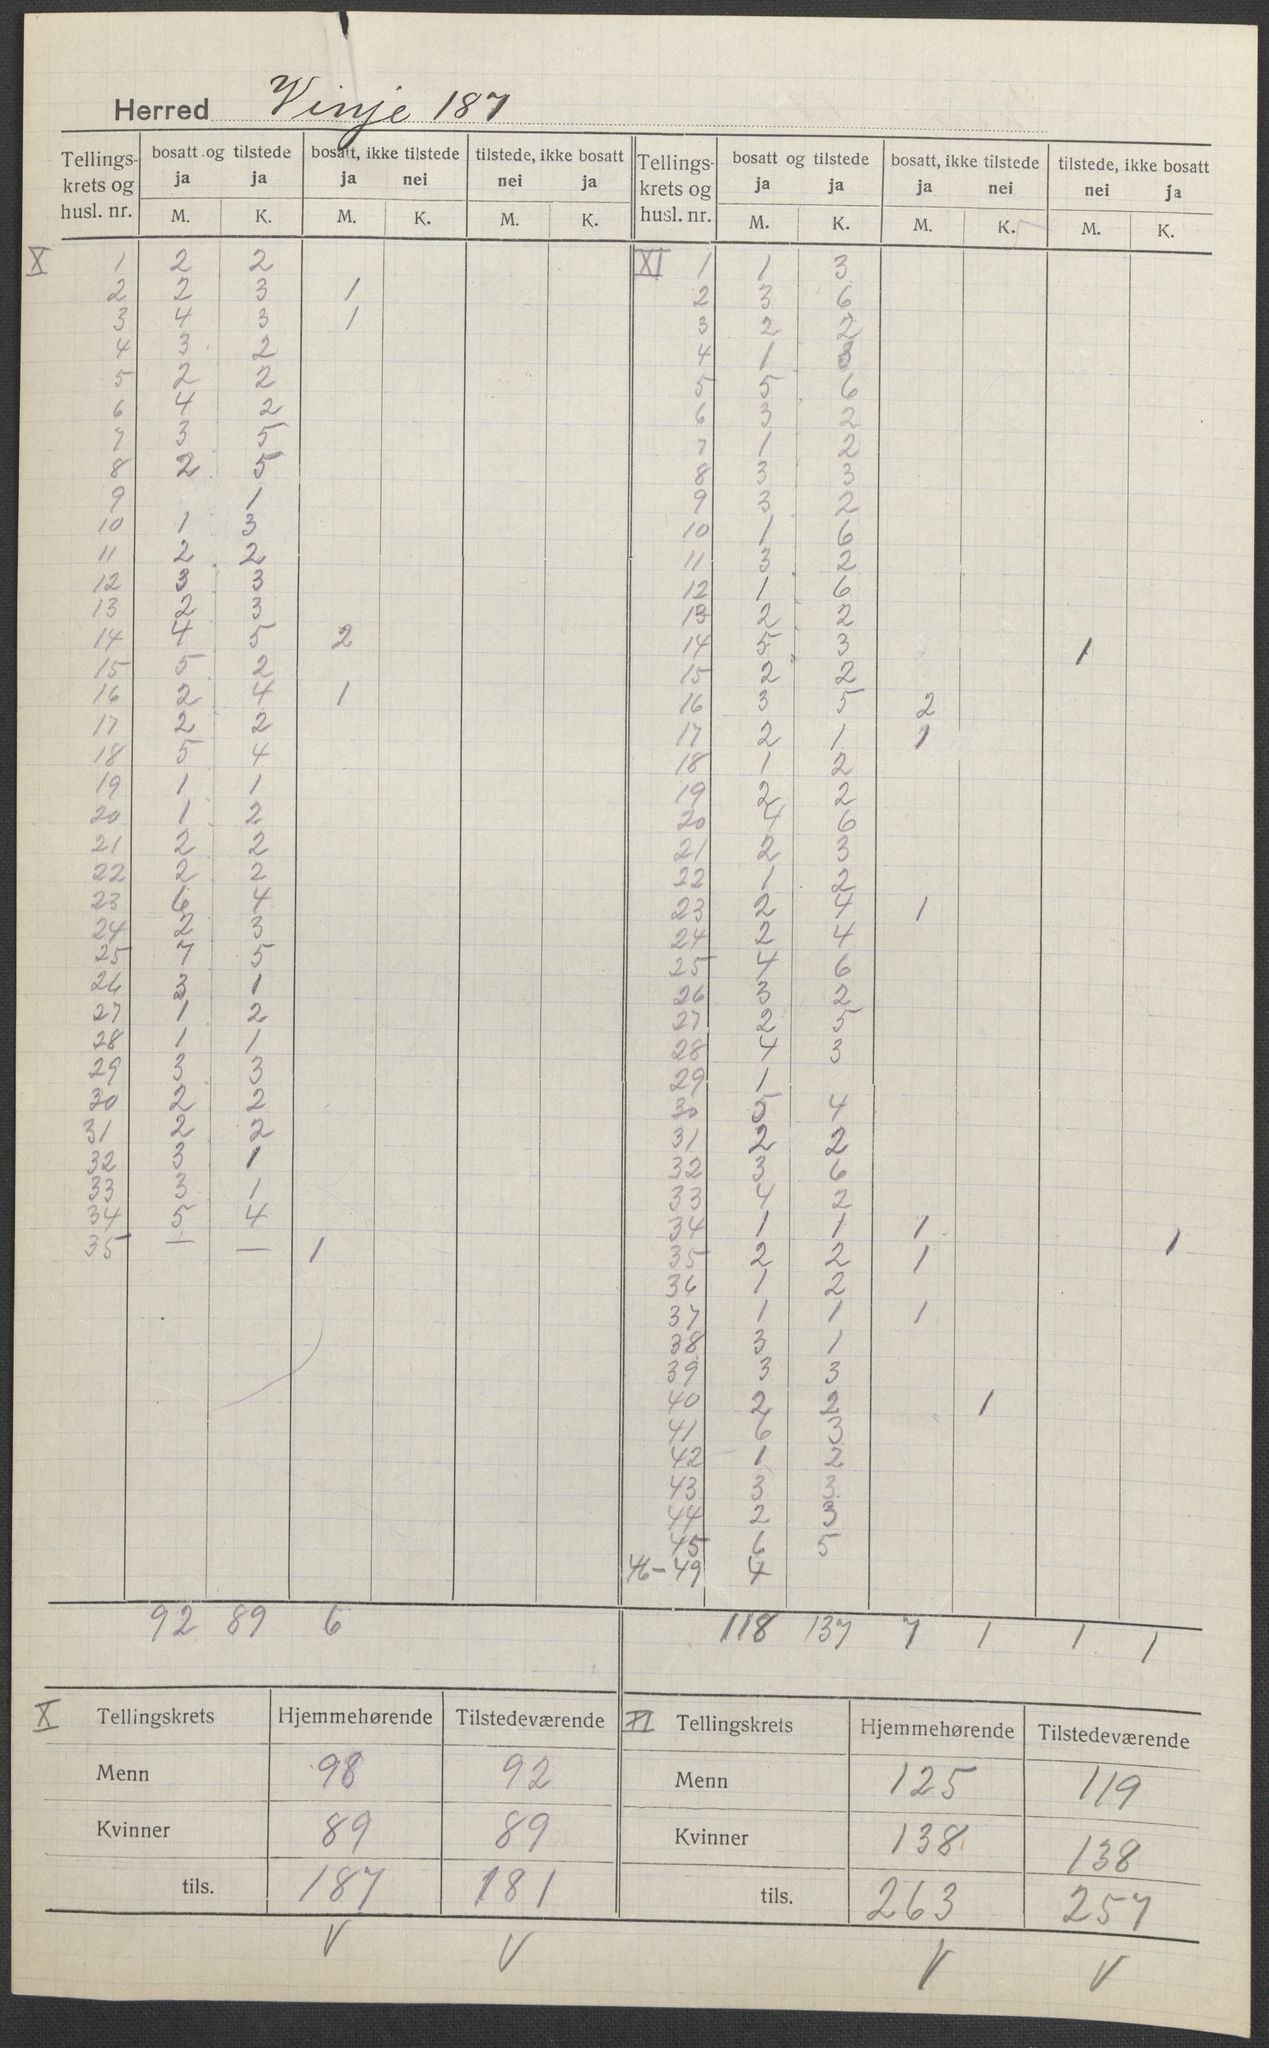 Herred Vinje 187
Tellings- krets og husl. nr. | bosatt og tilstede ja ja | bosatt, ikke tilstede ja nei | tilstede, ikke bosatt nei ja | Tellings- krets og husl. nr. | bosatt og tilstede ja ja | bosatt, ikke tilstede ja nei | tilstede, ikke bosatt nei ja
M. K. M. K. M. K. M. K. M. K. M. K.
X
1 2 2
2 2 3 1
3 4 3 1
4 3 2
5 2 2
6 4 2
7 3 5
8 2 5
9 1
10 1 3
11 2 2
12 3 3
13 2 3
14 4 5 2
15 5 2
16 2 4 1
17 2 2
18 5 4
19 1 1
20 1 2
21 2 2
22 2 2
23 6 4
24 2 3
25 7 5
26 3 1
27 1 2
28 1 1
29 3 3
30 2 2
31 2 2
32 3 1
33 3 1
34 5 4
35 — — 1
92 89 6
XI
1 1 3
2 3 6
3 2 2
4 1 3
5 5 6
6 3 2
7 1 2
8 3 3
9 3 2
10 1 6
11 3 2
12 1 6
13 2 2
14 5 3 1
15 2 2
16 3 5 2
17 2 1 1
18 1 2
19 2 2
20 4 6
21 2 3
22 1 2
23 2 4 1
24 2 4
25 4 6
26 3 2
27 2 5
28 4 3
29 1
30 5 4
31 2 2
32 3 6
33 4 2
34 1 1 1 1
35 2 2 1
36 1 2
37 1 1 1
38 3 1
39 3 3
40 2 2 1
41 6 3
42 1 2
43 3 3
44 2 3
45 6 5
46-49 4
118 137 7 1 1 1
X Tellingskrets Hjemmehørende Tilstedeværende
Menn 98 92
Kvinner 89 89
tils. 187 181
V V
XI Tellingskrets Hjemmehørende Tilstedeværende
Menn 125 119
Kvinner 138 138
tils. 263 257
V V